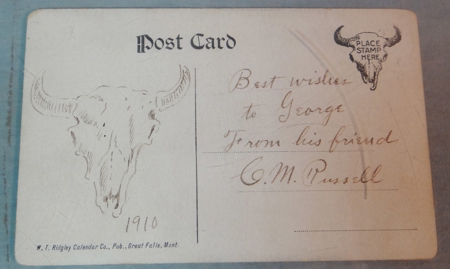 Post Card
PLACE
STAMP
HERE
Best wishes
to George
From his friend
C. M. Russell
1910
W. T. Ridgley Calendar Co., Pub., Great Falls, Mont.